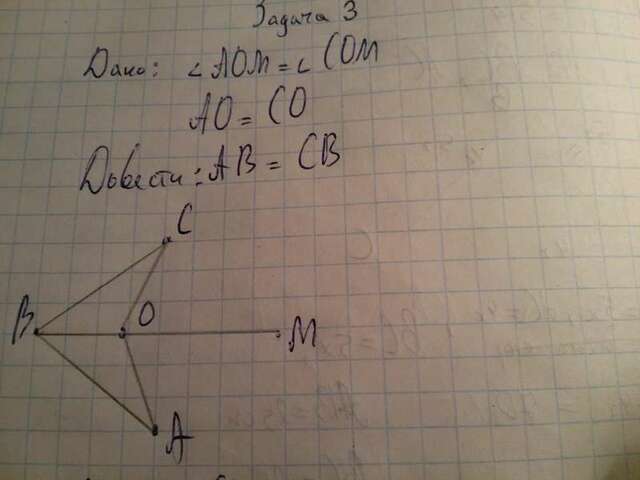 Задача 3
Дано: ∠AOM = ∠COM
AO = CO
Довести: AB = CB
C
B
O
M
A